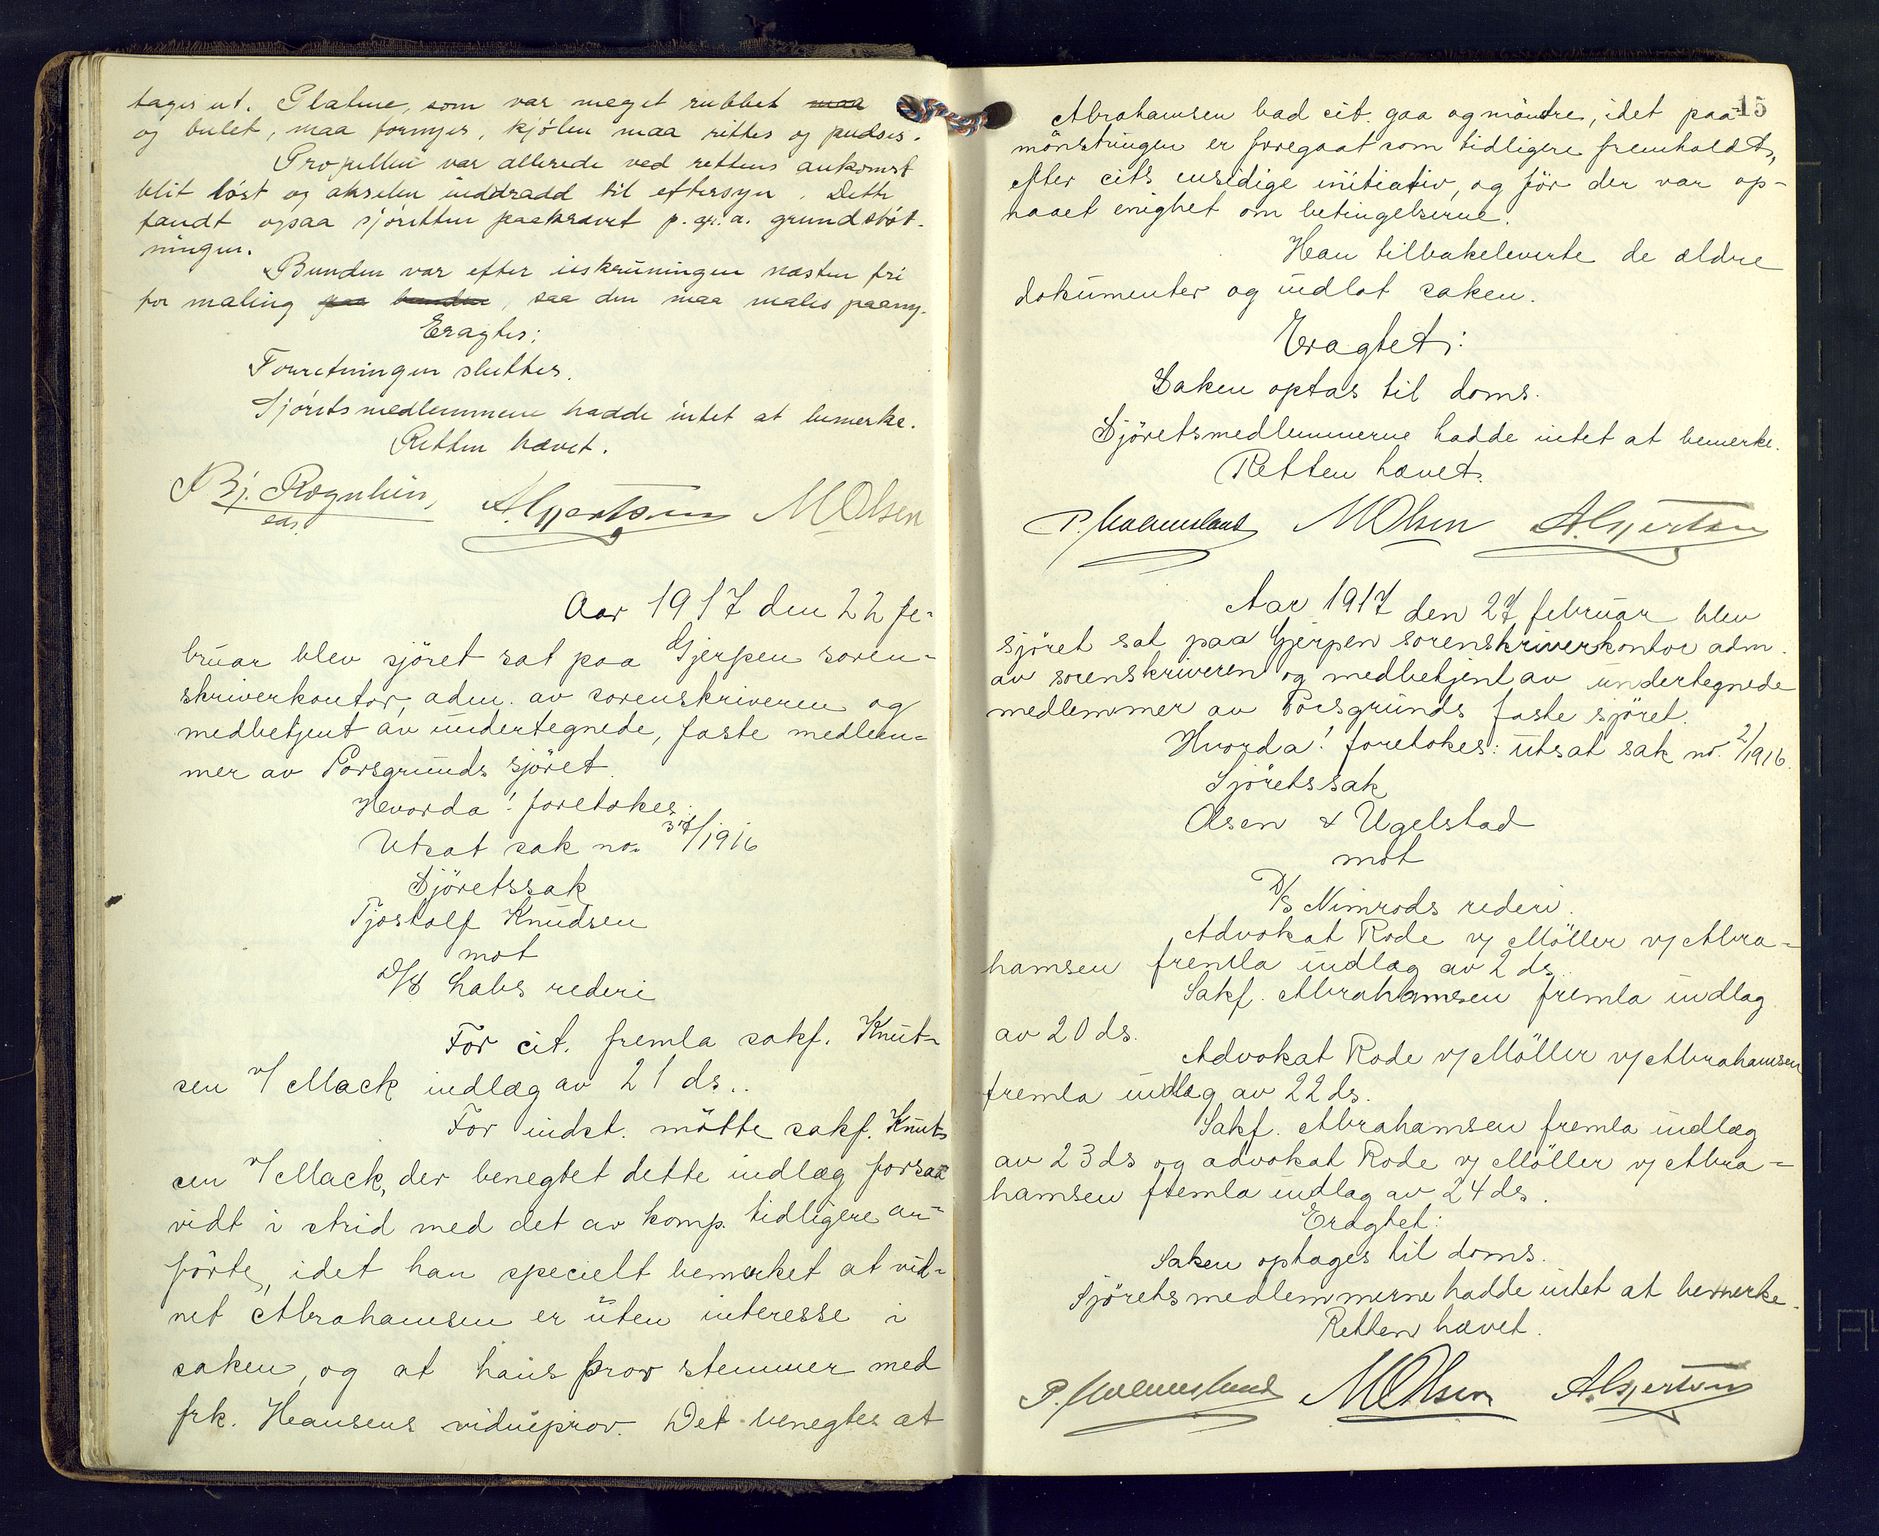 tages ut. Platene, som var meget rubbet maa
og bulet, maa fornyes, kjølen maa rettes og pudses.
Propellen var allerede ved rettens ankomst
blit løst og akselen inddradd til eftersyn. Dette
fandt ogsaa sjøretten paakrævet p. gr. a. grundstøt-
ningen.
Bunden var efter isskruningen næsten fri
for maling paa bunden, saa den maa males paany.
Eragtes:
Forretningen sluttes.
Sjøretsmedlemmene hadde intet at bemerke.
Retten hævet.
Bj. Rognlien,
eds.
A. Gjertsen MOlsen
Aar 1917 den 22 fe-
bruar blev sjöret sat paa Gjerpen soren-
skriverkontor, adm. av sorenskriveren og
medbetjent av undertegnede, faste medlem-
mer av Porsgrunds sjöret.
Hvorda! foretokes:
Utsat sak no. 3/1916
Sjöretssak
Tjostolf Knudsen
mot
D/S Labs rederi
For cit. fremla sakf. Knut-
sen v/ Mack indlæg av 21 ds..
For indst. mötte sakf. Knut-
sen v/ Mack, der benegtet dette indlæg forsaa-
vidt i strid med det av komp. tidligere an-
förte, idet han specielt bemerket at vid-
net Abrahamsen er uten interesse i
saken, og at hans prov stemmer med
frk. Hansens vidneprov. Det benegtes at
15
Abrahamsen bad cit. gaa og mönstre, idet paa-
mönstringen er foregaat som tidligere fremholdt,
efter cits ensidige initiativ, og för der var op-
naaet enighet om betingelserne.
Han tilbakeleverte de ældre
dokumenter og indlot saken.
Eragtet:
Saken optas til doms.
Sjöretsmedlemmerne hadde intet at bemerke.
Retten hævet.
P. Holmesland MOlsen A. Gjertsen
Aar 1917 den 27 februar blev
sjöret sat paa Gjerpen sorenskriverkontor adm.
av sorenskriveren og medbetjent av undertegnede
medlemmer av Porsgrunds faste sjöret.
Hvorda! foretokes: utsat sak no. 2/1916.
Sjöretssak
Olsen & Ugelstad
mot
D/S Nimrods rederi.
Advokat Rode v/ Möller v/ Abra-
hamsen fremla indlæg av 2 ds..
Sakf. Abrahamsen fremla indlæg
av 20 ds.
Advokat Rode v/ Möller v/ Abrahamsen
fremla indlæg av 22 ds.
Sakf. Abrahamsen fremla indlæg
av 23 ds og advokat Rode v/ Möller v/ Abra-
hamsen fremla indlæg av 24 ds.
Eragtet:
Saken optages til doms.
Sjöretsmedlemmerne hadde intet at bemerke.
Retten hævet.
P. Holmesland MOlsen A. Gjertsen